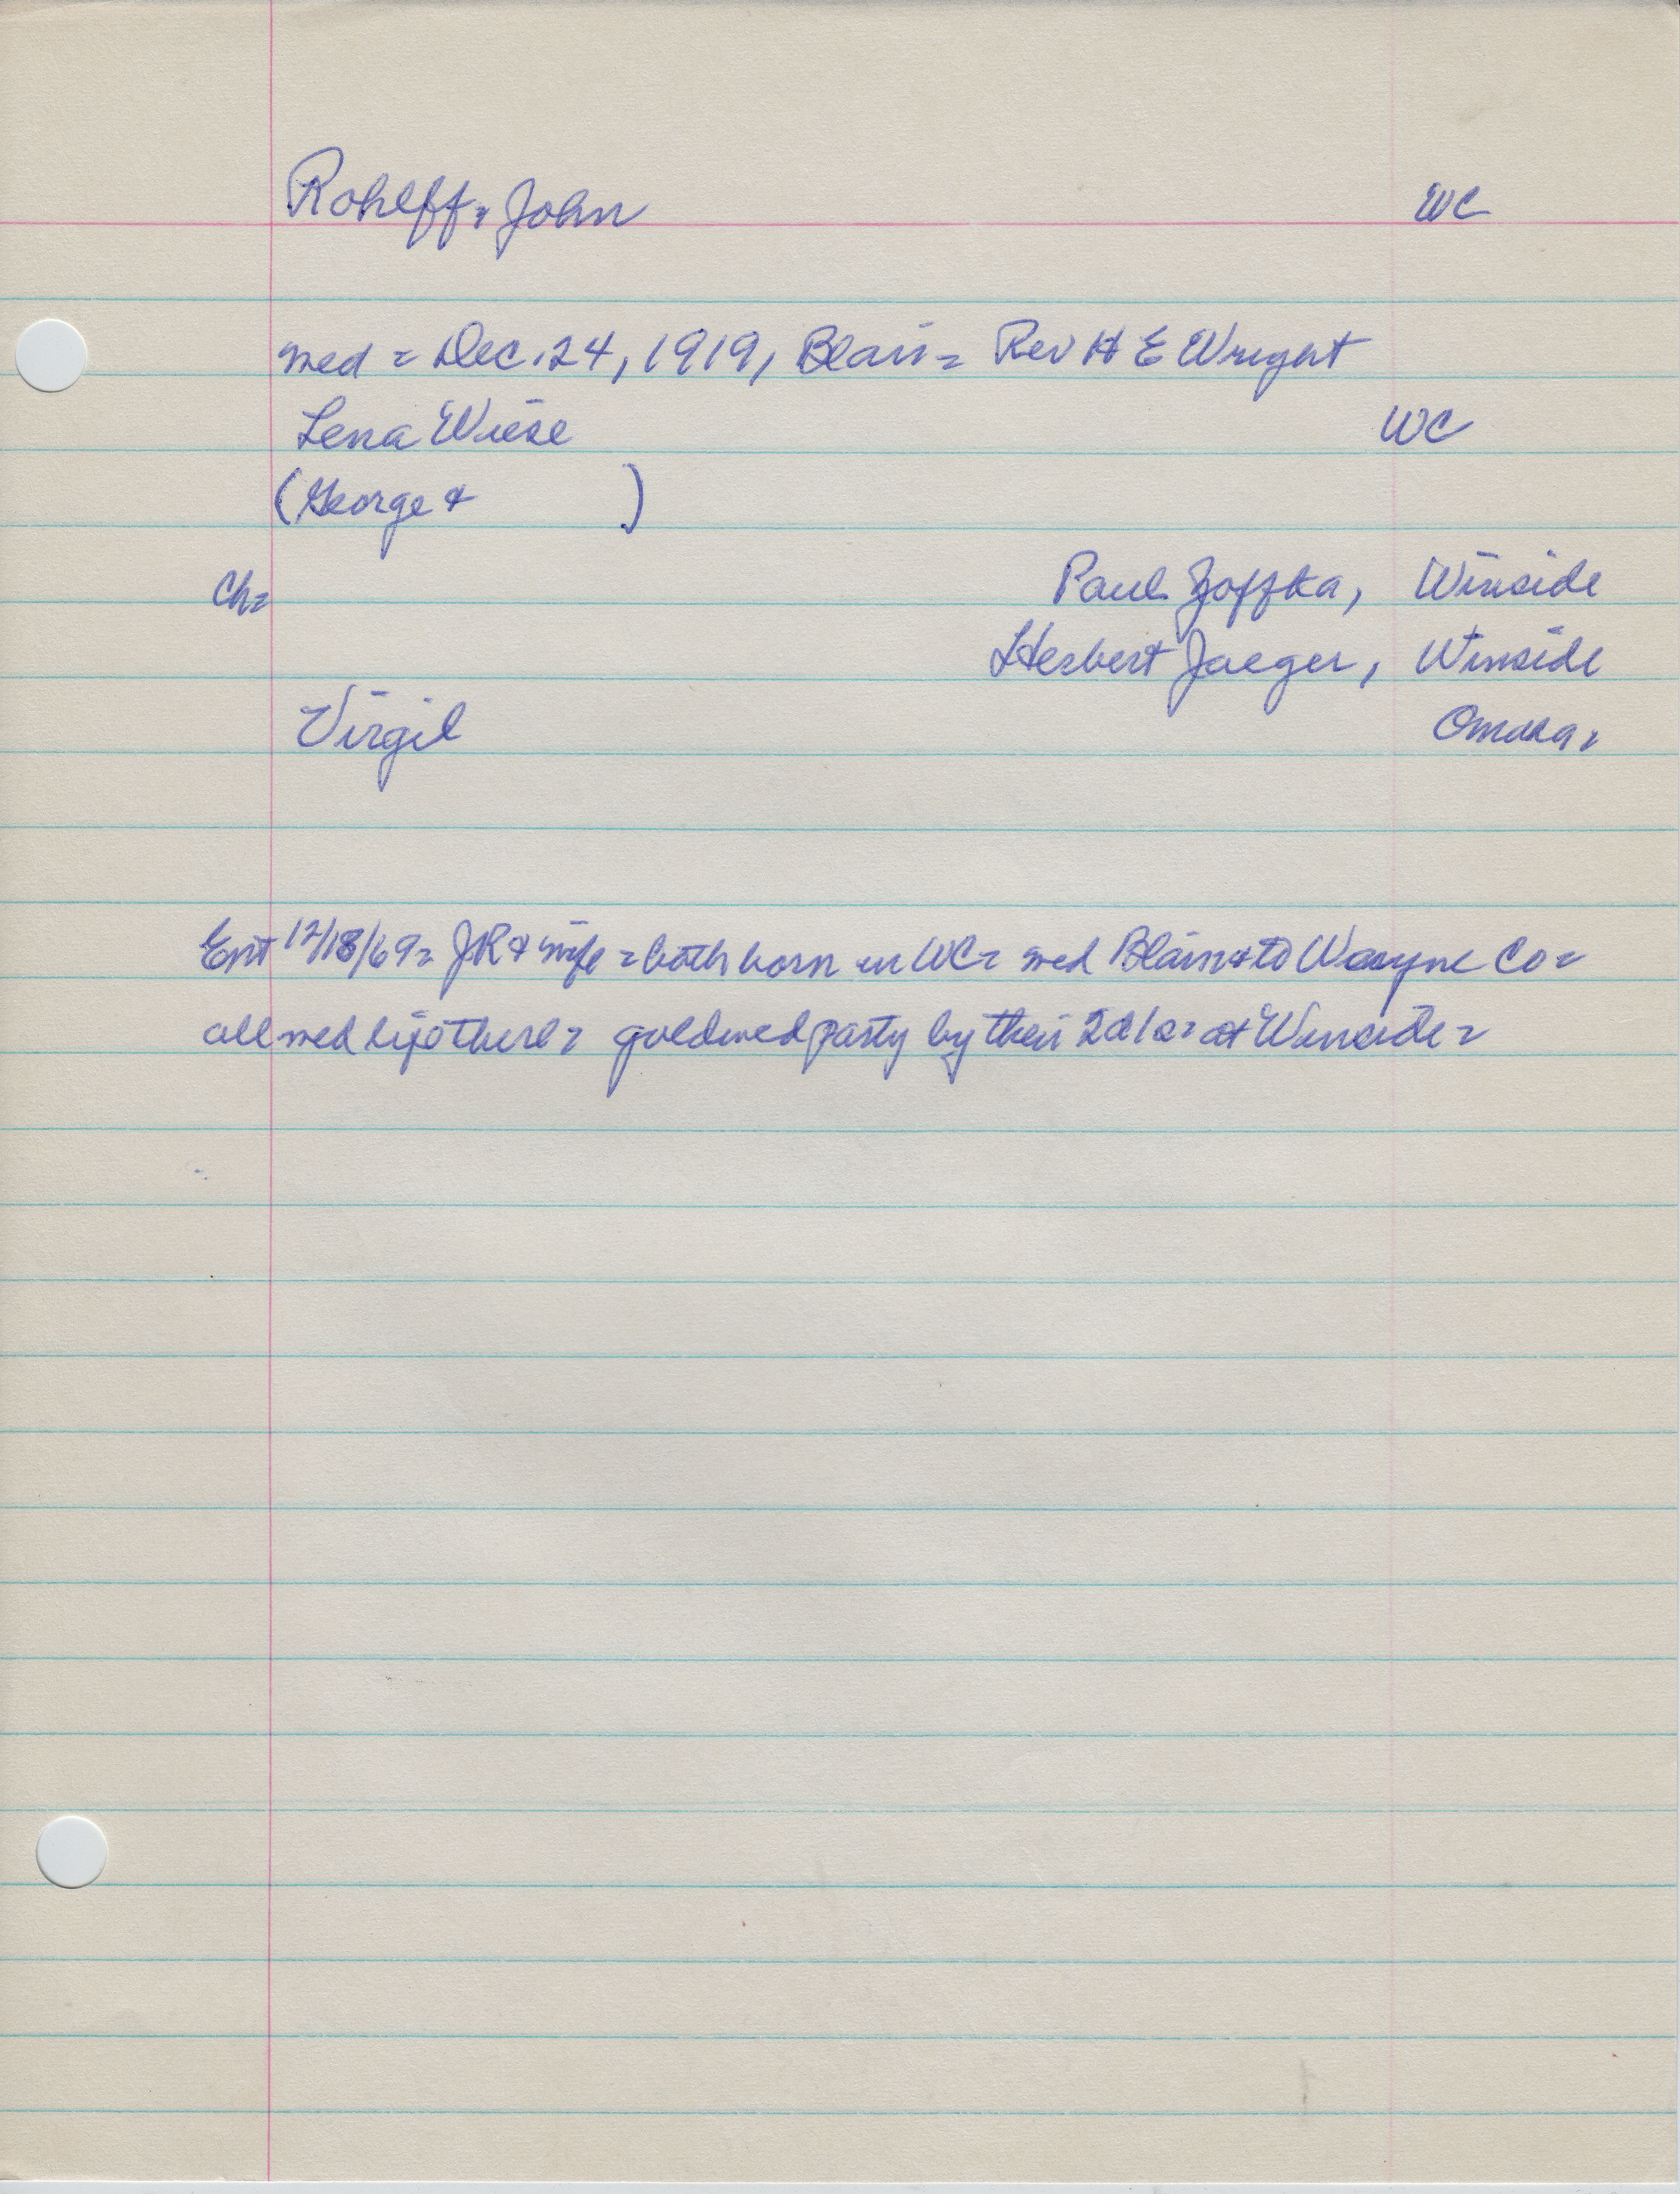 Rohlff, John WC
med = Dec. 24, 1919, Blair = Rev H E Wright
Lena Wiese WC
(George & )
Ch= Paul Zoffka, Winside
Herbert Jaeger, Winside
Virgil Omaha,
Ent 12/18/69= JR & wife = both born in WC= med Blair & to Wayne Co=
all med life there= gold wed party by their at Winside=